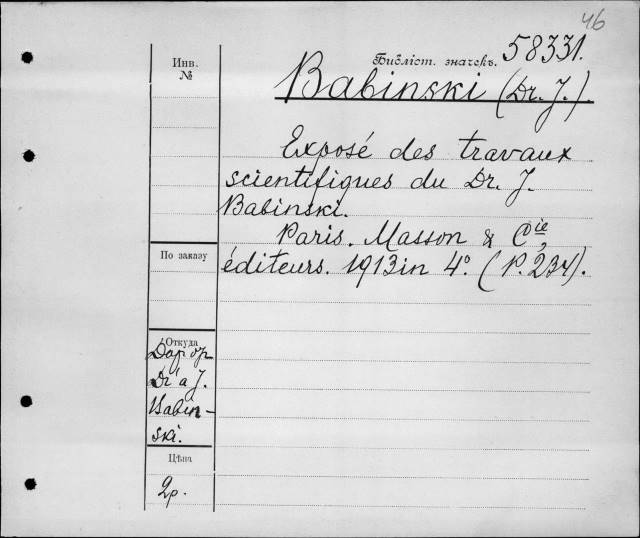 46
Инв.
№
Библіот. значекъ. 58331.
Babinski (Dr. J.).
Exposé des travaux
scientifiques du Dr. J.
Babinski.
Paris. Masson & Cie,
éditeurs. 1913 in 4°. (P. 234).
По заказу
Откуда
Даръ
Dr a J.
Babin-
ski.
Цѣна
2р.